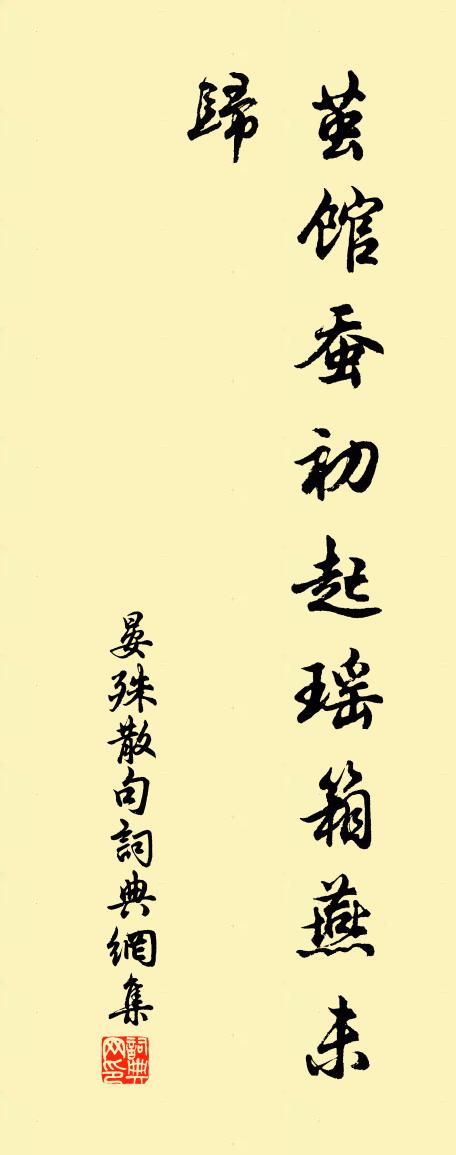 茧馆蚕初起瑶箱燕未
歸
晏殊散句詞典網集
詞典
网印